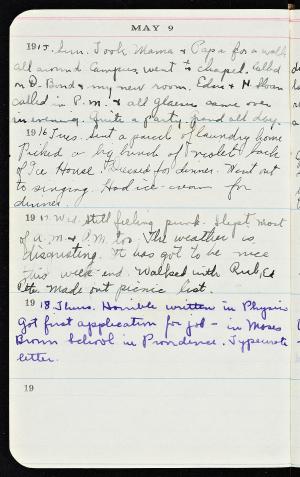 MAY 9
1915. Sun. Took Mama & Papa for a walk
all around Campus, went to chapel. Called
on D. Bond & my new room. Edna & H. Sloan
called in P.M. & all Glasers came over
in evening. Quite a party, grand all day.
1916 Tues. Sent a parcel of laundry home
Picked a big bunch of violets back
of Ice House. Dressed for dinner. Went out
to singing. Had ice-cream for
dinner.
1917. Wed. Still feeling punk. Slept most
of A.M. & P.M. too. The weather is
disgusting. It has got to be nice
this week-end. Walked with
made out picnic list.
1918 Thurs. Horrible written in Physics
Got first application for job - in Moses
Brown School in Providence. Typewrote
letter.
19